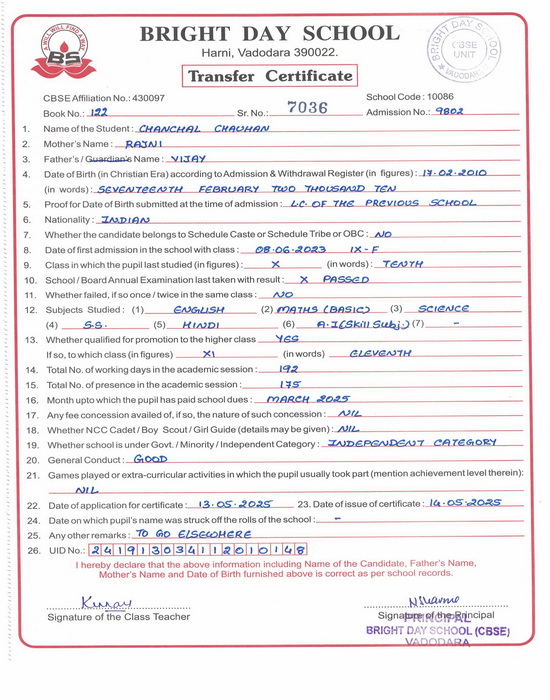 A WILL WILL FIND A WAY
BS
BRIGHT DAY SCHOOL
Harni, Vadodara 390022.
Transfer Certificate
BRIGHT DAY SCHOOL
CBSE
UNIT
VADODARA
CBSE Affiliation No.: 430097 School Code : 10086
Book No.: 122 Sr. No.: 7036 Admission No.: 9802
1. Name of the Student : CHANCHAL CHAUHAN
2. Mother's Name : RAJNI
3. Father's / Guardian's Name : VIJAY
4. Date of Birth (in Christian Era) according to Admission & Withdrawal Register (in figures) : 17.02.2010
(in words) : SEVENTEENTH FEBRUARY TWO THOUSAND TEN
5. Proof for Date of Birth submitted at the time of admission : L.C. OF THE PREVIOUS SCHOOL
6. Nationality : INDIAN
7. Whether the candidate belongs to Schedule Caste or Schedule Tribe or OBC : NO
8. Date of first admission in the school with class : 08.06.2023 IX-F
9. Class in which the pupil last studied (in figures) : X (in words) : TENTH
10. School / Board Annual Examination last taken with result : X PASSED
11. Whether failed, if so once / twice in the same class : NO
12. Subjects Studied : (1) ENGLISH (2) MATHS (BASIC) (3) SCIENCE
(4) S.S. (5) HINDI (6) A.I (Skill Subj.) (7) -
13. Whether qualified for promotion to the higher class YES
If so, to which class (in figures) XI (in words) ELEVENTH
14. Total No. of working days in the academic session : 192
15. Total No. of presence in the academic session : 175
16. Month upto which the pupil has paid school dues : MARCH 2025
17. Any fee concession availed of, if so, the nature of such concession : NIL
18. Whether NCC Cadet / Boy Scout / Girl Guide (details may be given) : NIL
19. Whether school is under Govt. / Minority / Independent Category : INDEPENDENT CATEGORY
20. General Conduct : GOOD
21. Games played or extra-curricular activities in which the pupil usually took part (mention achievement level therein):
NIL
22. Date of application for certificate : 13.05.2025 23. Date of issue of certificate : 14.05.2025
24. Date on which pupil's name was struck off the rolls of the school : -
25. Any other remarks : TO GO ELSEWHERE
26. UID No.: 241913034112010148
I hereby declare that the above information including Name of the Candidate, Father's Name,
Mother's Name and Date of Birth furnished above is correct as per school records.
Signature of the Class Teacher Signature of the Principal
PRINCIPAL
BRIGHT DAY SCHOOL (CBSE)
VADODARA